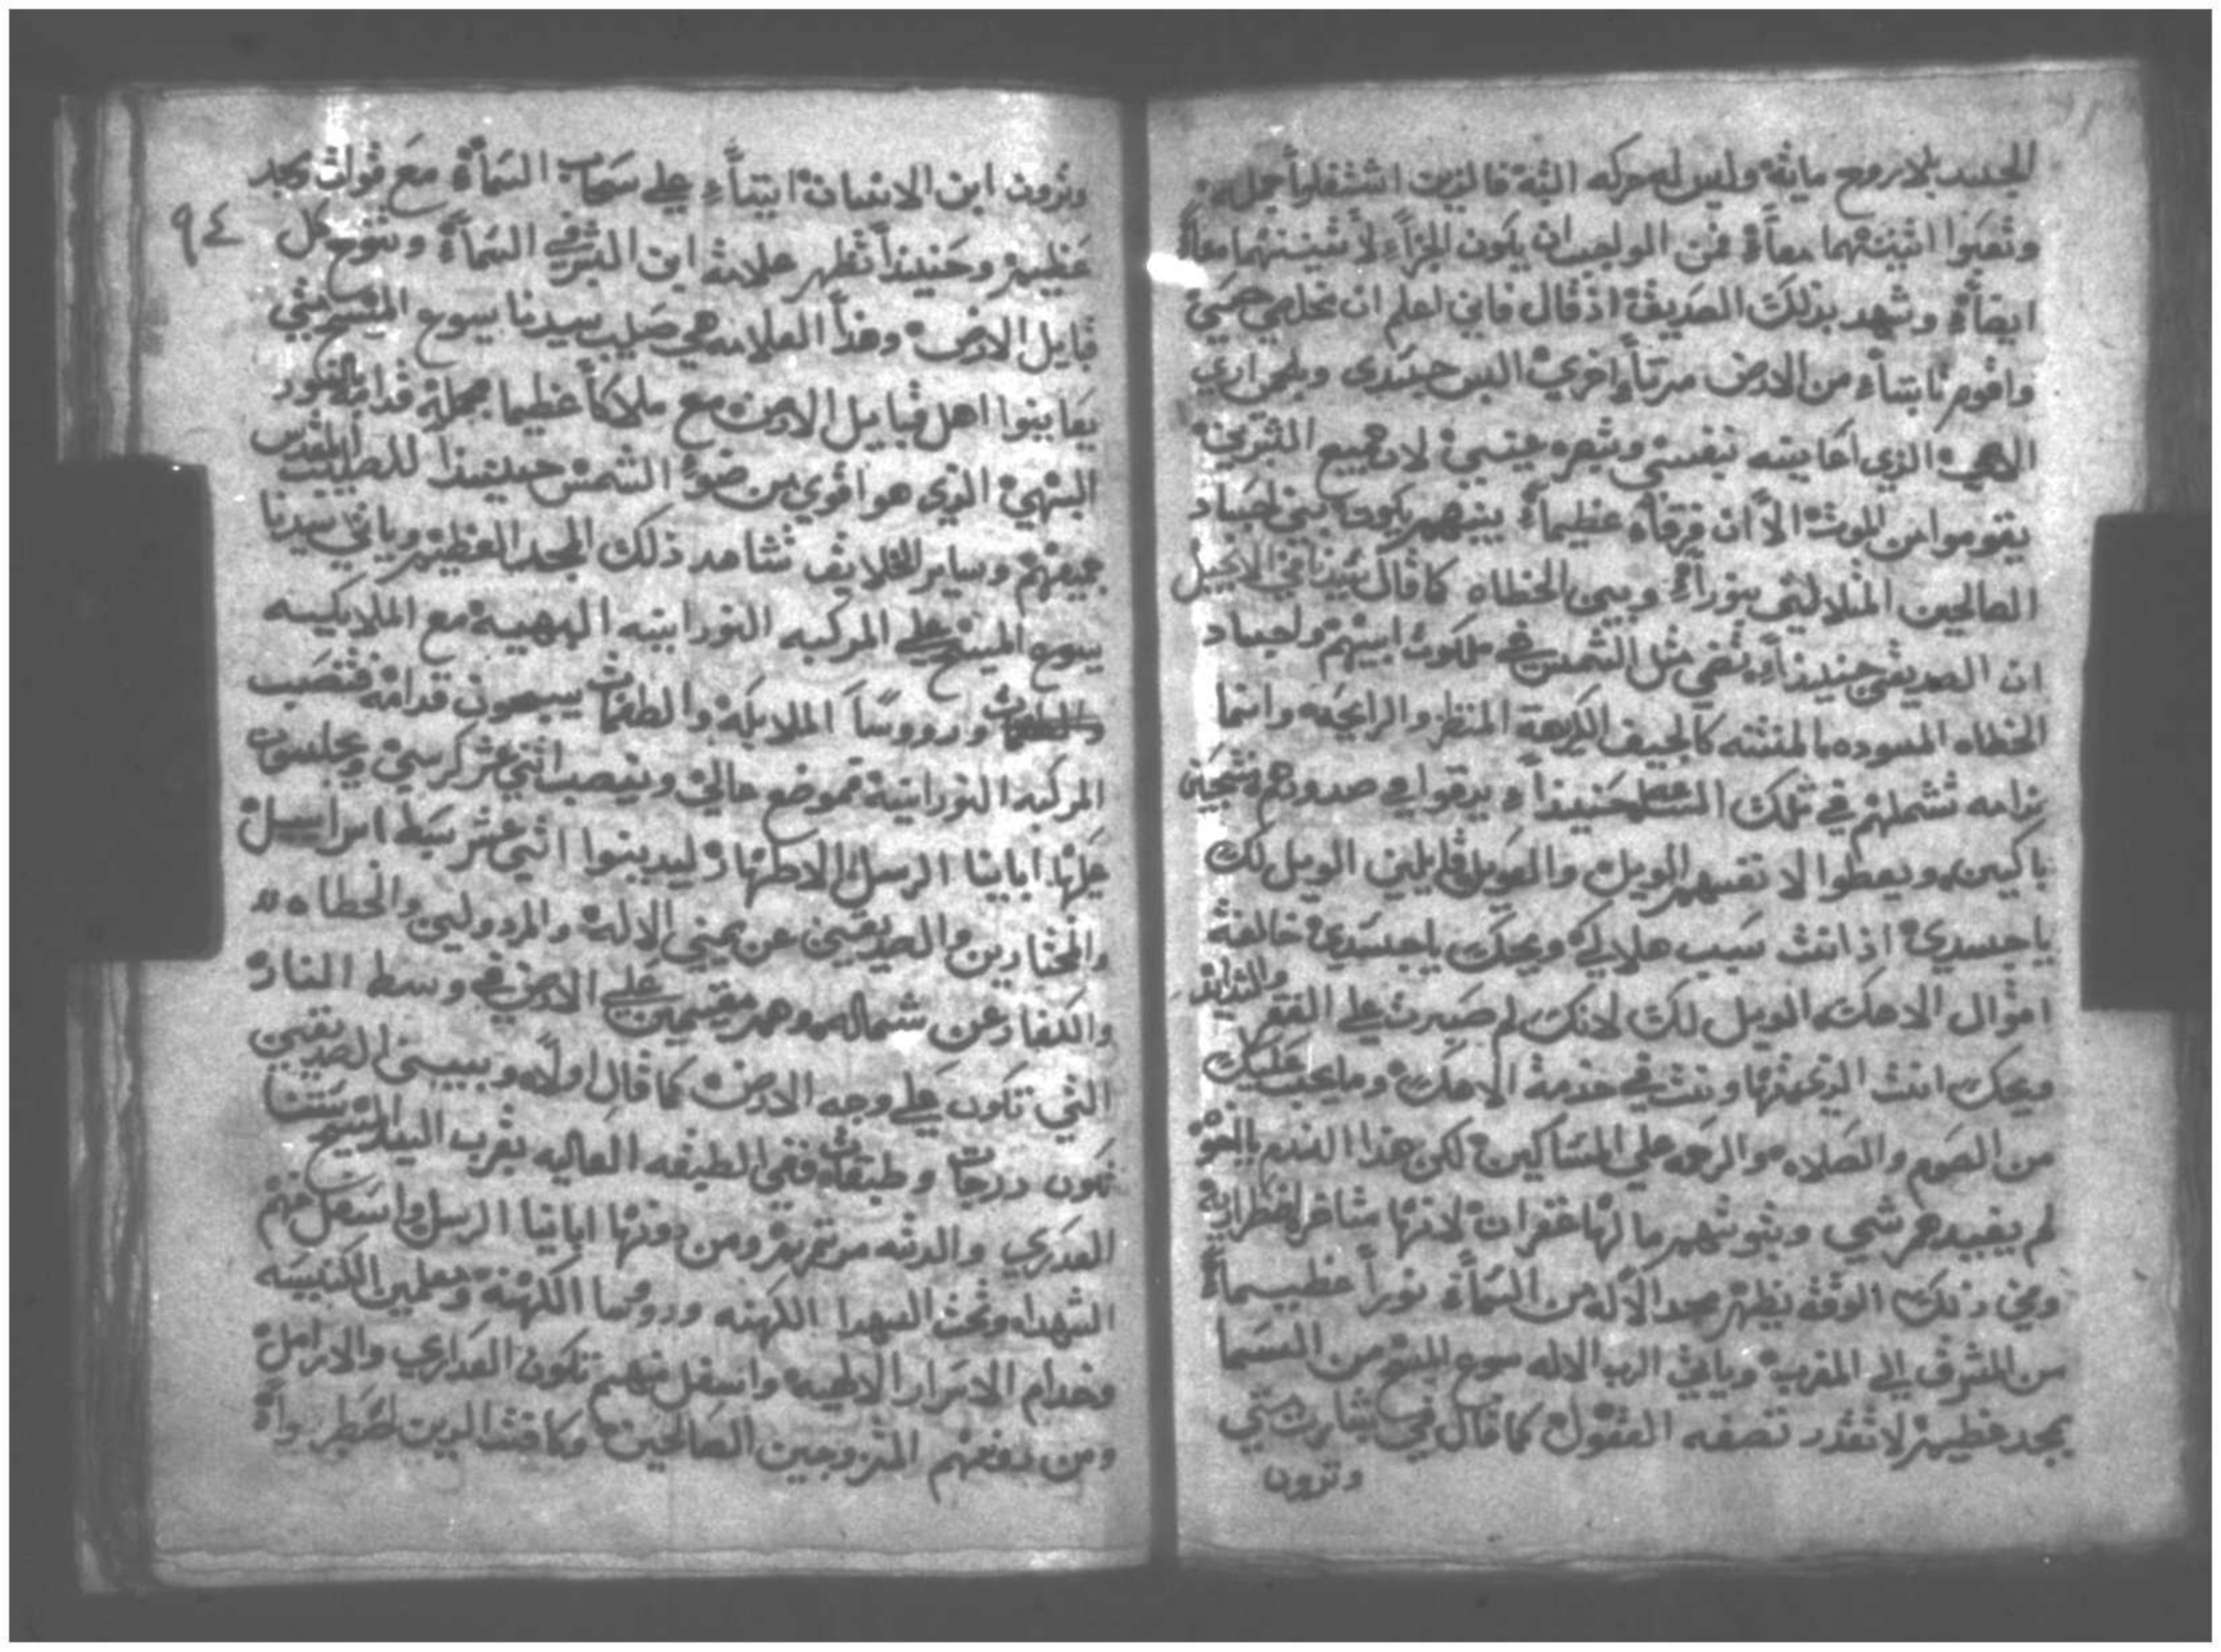 الجسد بلا روح مايته وليس له حركه البته فالزين اشتغلوا جمله
وتعبوا اثنينهما معاً فمن الواجب ان يكون الجزاء لاثنينهما معاً
ايضاً وشهد بذلك الصديق اذ قال فاني اعلم ان مخلصي حي
واقوم ثابتاً من الارض مرتاً اخري البس جسدي وبلحمي اري
الاهي الذي اعاينه بنفسي وتبصره عيني لان جميع البشرين
يقوموا من الموت الا ان فرقاً عظيماً بينهم يكون بين اجساد
الصالحين المتلاليين بنوراً وبين الخطاه كما قال سيدنا في الانجيل
ان الصديقين حينيذاً تضي مثل الشمس في ملكوت ابيهم واجساد
الخطاه المسوده المنتنه كالجيف الكريهة المنظر والرايحه وانما
ندامه تشملهم في تلك حينيذاً ويدقوا في صدورهم
باكين ويعطوا لانفسهم الويل والعويل قايلين الويل لك
ياجسدي اذ انت سبب هلاكي ويحك ياجسدي خالفة
اقوال الاهك الويل لك لانك لم صبرت علي الفقر والشدايد
ويحك انت الذي تهاونت في خدمة الاهك وما يجب عليك
من الصوم والصلاه والرحمه علي المساكين لكن هذا الندم
لم يفيدهم شي وتوبتهم ما لها غفران لانها متاخره
وفي ذلك الوقت يظهر مجد الاله من السماء نوراً عظيماً
من المشرق الي المغرب وياتي الرب الاله يسوع المسيح من السما
بمجد عظيم لا تقدر تصفه العقول كما قال في بشارت متي
وترون
وترون ابن الانسان اتياً علي سحاب السماء مع قوات ومجد
عظيم وحينيذاً تظهر علامة ابن البشر في السماء وتنوح كل
٩٤
قبايل الارض وهذا العلامه هي صليب سيدنا يسوع المسيح التي
يعاينوا اهل قبايل الارض مع ملاكاً عظيما يحمله قدامه بالنور
البهي الذي هو اقوي من ضو الشمس حينيذاً للصليب المقدس
جميعهم وساير الخلايق تشاهد ذلك المجد العظيم وياتي سيدنا
يسوع المسيح علي المركبه النورانيه البهيه مع الملايكيه
وروسا الملايكة والطغمات يسبحون قدامه فتنصب
المركبه النورانية بموضع عالي وينصب اثني عشر كرسي ويجلسون
عليها ابايانا الرسل الاطهار ليدينوا اثني عشر سبط اسراييل
والمختارين والصديقين عن يمين الاله والمردولين والخطاه
والكفار عن شماله وهم مقيمين علي الارض في وسط النار
التي تكون علي وجه الارض كما قال اولاً وبين الصديقين
تكون درجات وطبقات ففي الطبقه العاليه بقرب السيد المسيح ستنا
العدري والدته مرتمريم ومن دونها ابايانا الرسل واسفل منهم
الشهداء وتحت الشهدا الكهنه وروسا الكهنه ومعلمين الكنيسه
وخدام الاسرار الالهيه واسفل منهم تكون العداري والارامل
ومن دونهم المتزوجين الصالحين وكافت الدين